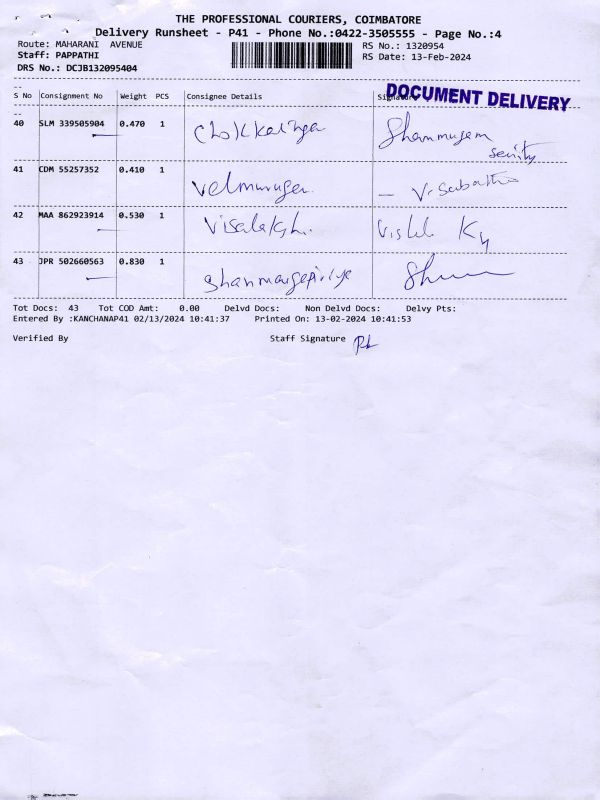 THE PROFESSIONAL COURIERS, COIMBATORE
Delivery Runsheet - P41 - Phone No.:0422-3505555 - Page No.:4
Route: MAHARANI AVENUE
RS No.: 1320954
Staff: PAPPATHI
RS Date: 13-Feb-2024
DRS No.: DCJB132095404
DOCUMENT DELIVERY
S No Consignment No Weight PCS Consignee Details Signature
40 SLM 339505904 0.470 1 Shanmugam
41 CDM 55257352 0.410 1 Velmurugan
42 MAA 862923914 0.530 1 Visalakshi
43 JPR 502660563 0.830 1
Tot Docs: 43 Tot COD Amt: 0.00 Delvd Docs: Non Delvd Docs: Delvy Pts:
Entered By :KANCHANAP41 02/13/2024 10:41:37 Printed On: 13-02-2024 10:41:53
Verified By Staff Signature